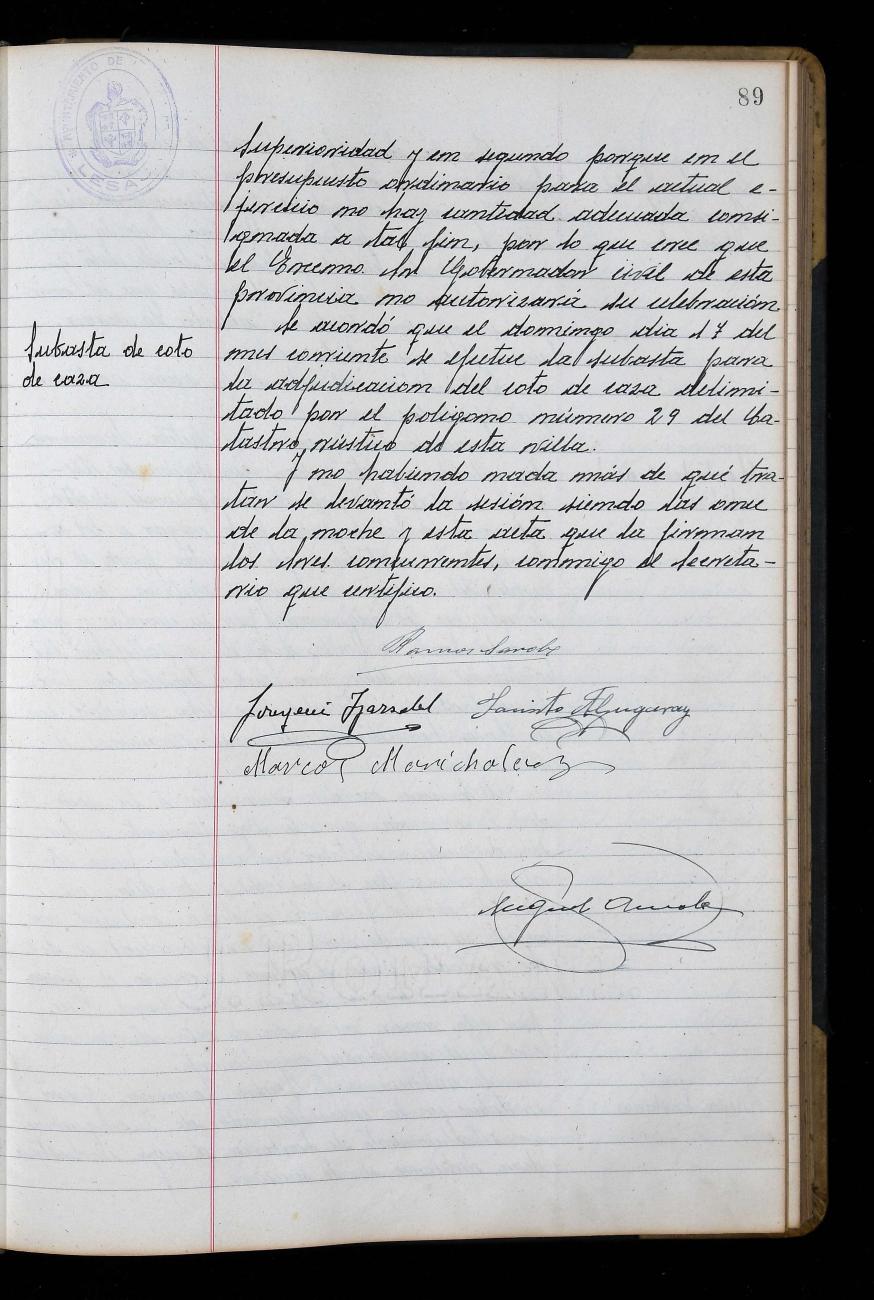 89
AYUNTAMIENTO DE
LESACA
Superioridad y en segundo porque en el
presupuesto ordinario para el actual e-
jercicio no hay cantidad adecuada consi-
gnada a tal fin, por lo que cree que
el Excmo. Sr. Gobernador civil de esta
provincia no autorizará su celebración.
Subasta de coto
de caza
Se acordó que el domingo dia 17 del
mes corriente se efectue la subasta para
la adjudicacion del coto de caza delimi-
tado por el poligono número 29 del Ca-
tastro rústico de esta villa.
Y no habiendo nada más de qué tra-
tar se levantó la sesión siendo las once
de la noche y esta acta que la firman
los Sres. concurrentes, conmigo el Secreta-
rio que certifico.
Ramos
Marcos Marichalar
Miguel